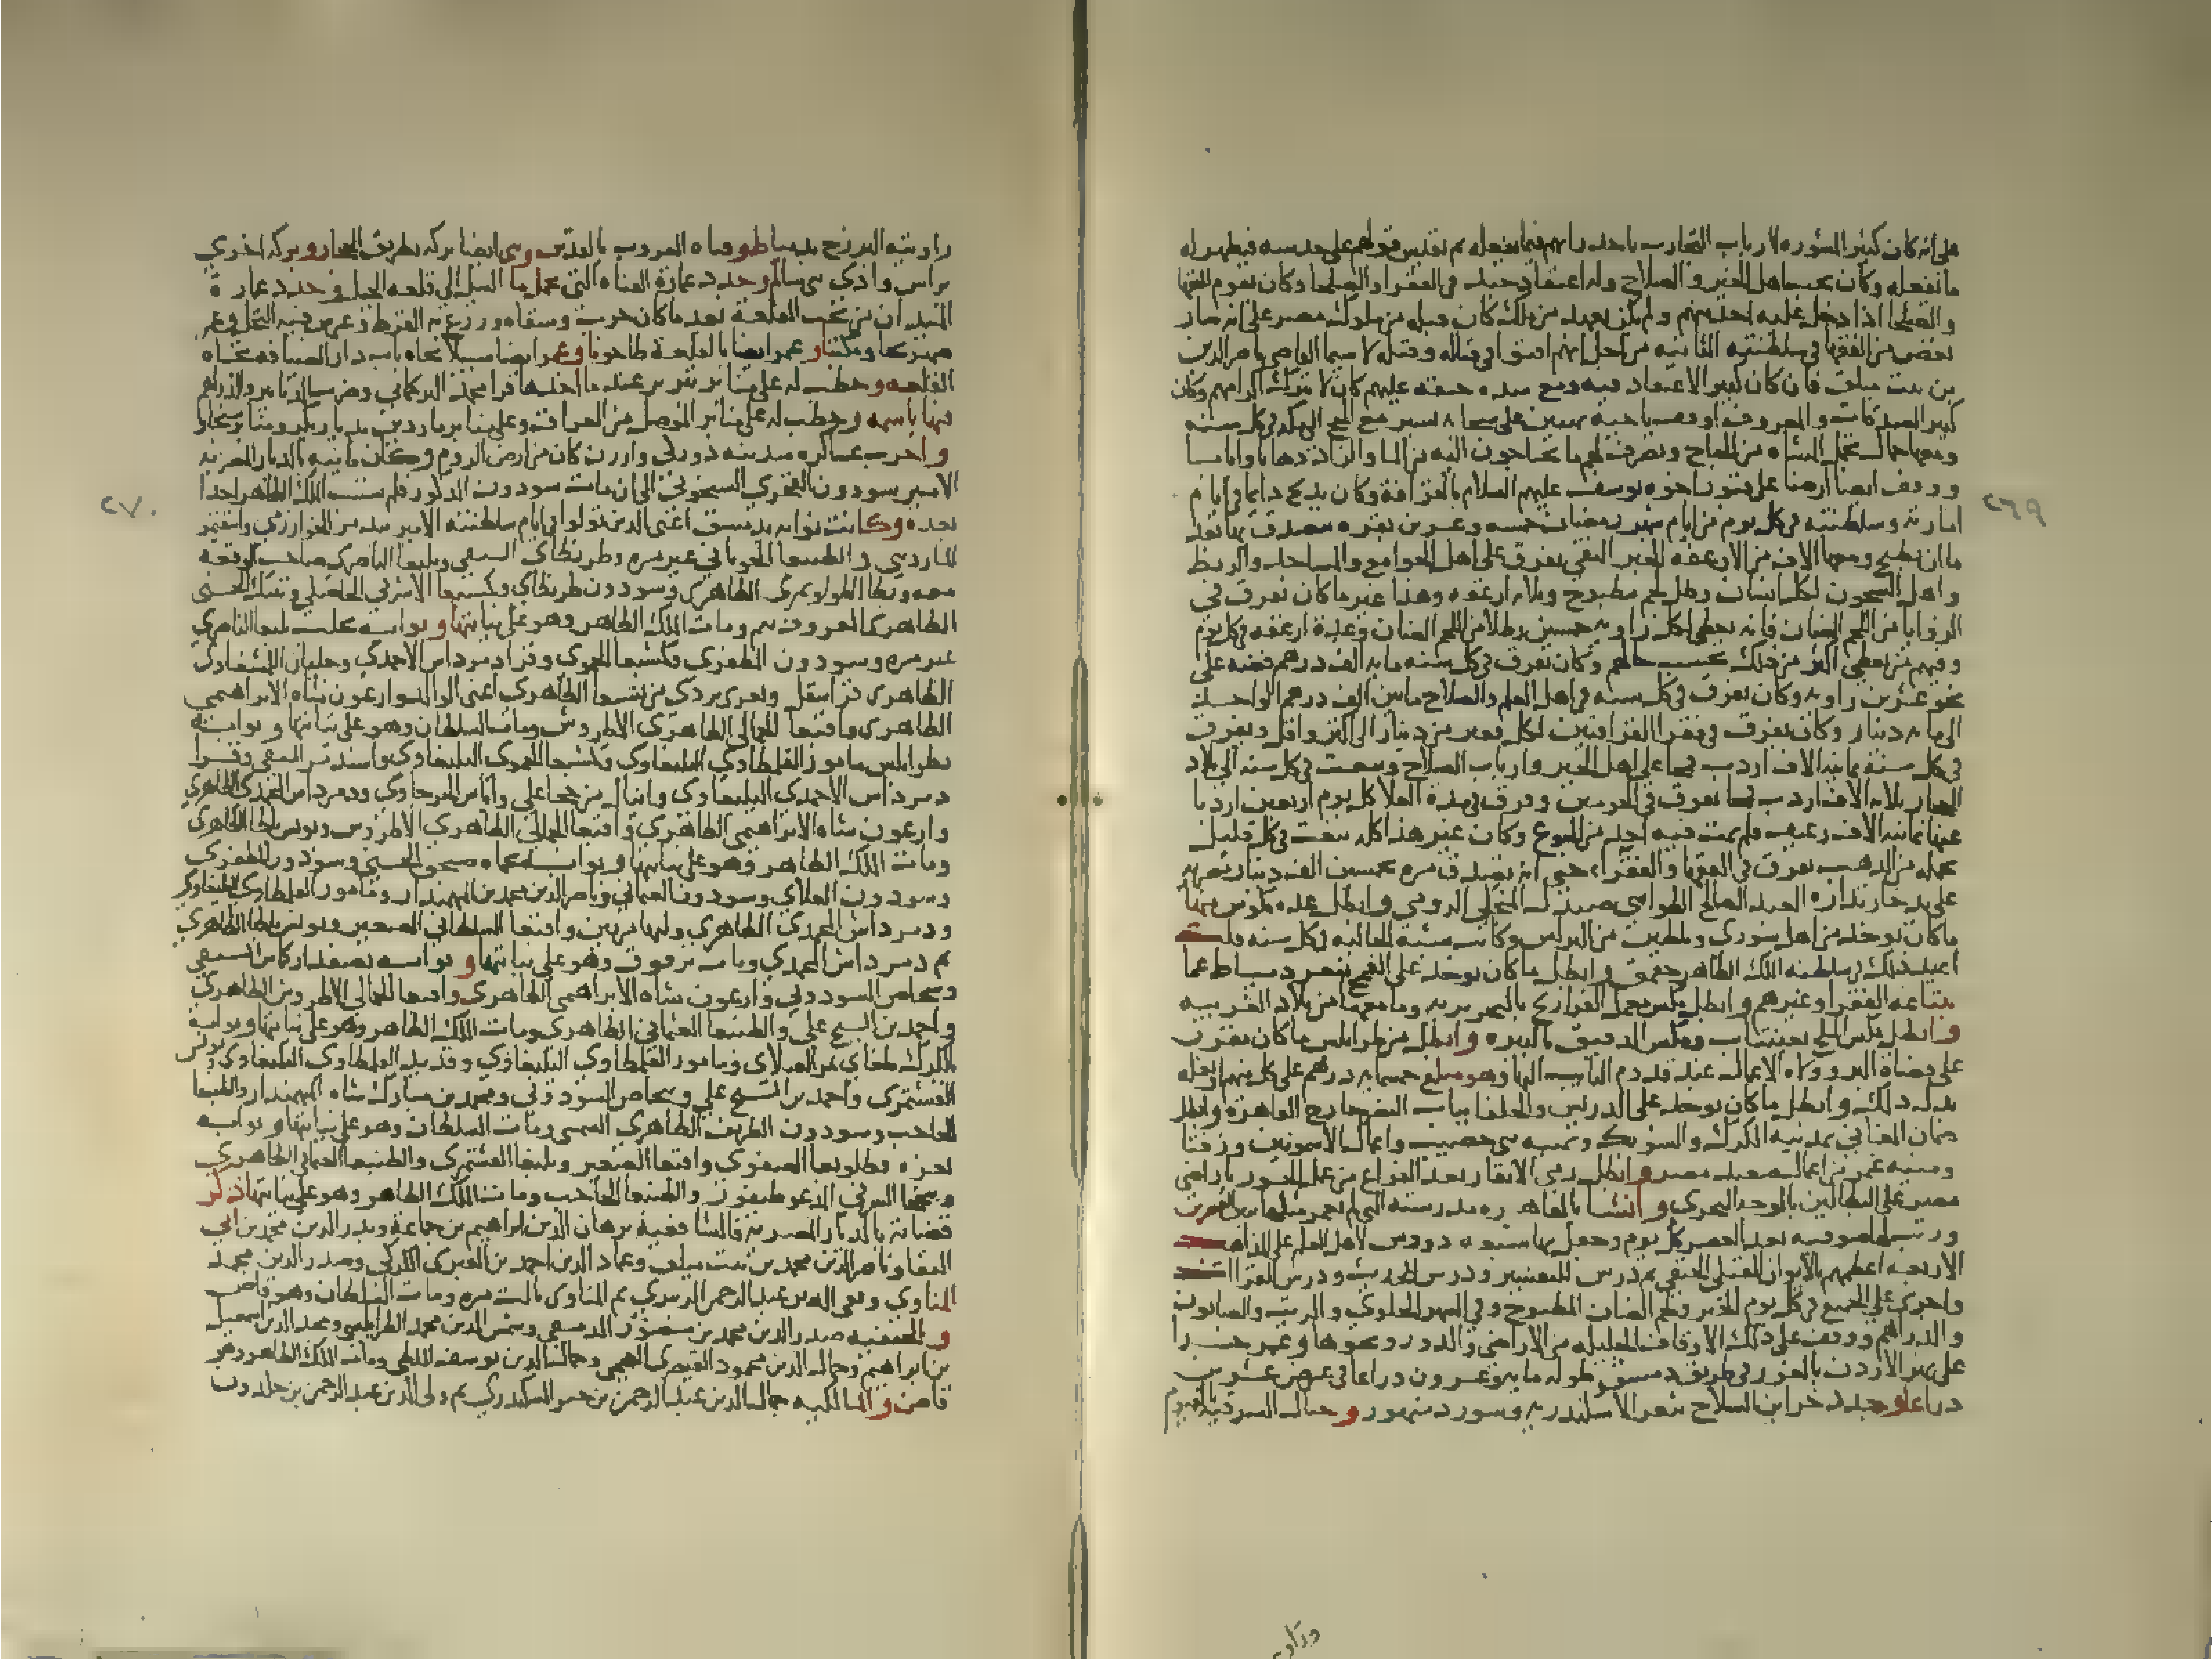 على انه كان كثير المشورة لارباب التجارب ياخذ رايهم فيما يفعله ثم يقيس قولهم على حدسه فيظهر له
ما يفعله وكان يحب اهل الخير والصلاح وله اعتقاد جيد في الفقرا والصلحا وكان يقوم للفقها
والصلحا اذا دخل عليه احد منهم ولم يكن يعهد ذلك كان قبله من ملوك مصر على انه صار
يغض من الفقها في سلطنته الثانيه من اجل انهم افتوا في قتاله وقتله لا سيما القاضي ناصر الدين
بن بنت ميلق فان كان كثير الاعتقاد فيه ومع شده حنقه عليهم كان لا يترك اكرامهم وكان
كثير الصدقات والمعروف اوقف ناحيه بهبيت على سحابه تسير مع الحج الى مكه في كل سنه
ومعها جمال تحمل المشاه من الحاج ويصرف لهم ما يحتاجون اليه من الما والزاد ذهابا وايابا
ووقف ايضا ارضا على قبور اخوه يوسف عليهم السلام بالقرافة وكان يذبح دايما في ايام
امارته وسلطنته في كل يوم من ايام شهر رمضان خمسه وعشرين بقره يتصدق بها بعد
ما ان تطبخ ومعها الاف من الارغفه الخبز النقي يفرق على اهل الجوامع والمساجد والربط
واهل السجون لكل انسان رطل لحم مطبوخ وثلاثه ارغفه وهذا غير ما كان يفرق في
الزوايا من اللحم الضان فانه يعطي لكل زاويه خمسين رطلا من اللحم الضان وعدة ارغفه في كل يوم
وفيهم من يعطى اكثر من ذلك بحسب حالهم وكان يفرق في كل سنه مايه الف درهم فضه على
نحو عشرين زاويه وكان يفرق في كل سنه في اهل العلم والصلاح مايتي الف درهم الواحد
الى مايه دينار وكان يفرق في فقرا القرافتين لكل فقير من دينار الى اكثر واقل ويفرق
في كل سنة ثمانيه الاف اردب قمحا على اهل الخير وارباب الصلاح ويبعث في كل سنه الى بلاد
الحجاز ثلاثه الاف اردب قمحا تفرق في الحرمين وفرق في مدة الغلا كل يوم اربعين اردبا
عنها ثمانيه الاف رغيف فلم يمت فيه احد من الجوع وكان غير هذا كله يبعث في كل قليل
بجمله من الذهب تفرق في الفقها والفقراء حتى انه تصدق مره بخمسين الف دينار مصريه
على يد خازنداره العبد الصالح الطواشي صندل المنجكي الرومي وابطل عده مكوس منها
ما كان يوخذ من اهل شورى وبلطيم من البرلس وكانت ستة الجاليه في كل سنه قلت
اعيد ذلك في سلطنه الملك الظاهر جقمق وابطل ما كان يوخذ على القمح بثغر دمياط عما
يبتاعه الفقرا وغيرهم وابطل مكس معمل الفراريج بالنحريريه وما معها من بلاد الغربيه
وابطل مكس الملح بعينتاب ومكس الدقيق بالبيره وابطل من طرابلس ما كان مقررا
على قضاة البر وولاه الاعمال عند قدوم النايب اليها وهو مبلغ خمسمايه درهم على كل منهم او بغله
بدل ذلك وابطل ما كان يوخذ على الدريس والحلفا بباب النصر خارج القاهرة وابطل
ضمان المغاني بمدينه الكرك والشوبك وبمنيه بني خصيب واعمال الاشمونين وزفتا
ومنيه غمر من اعمال مصر وابطل رمي الابقار بعد الفراغ من عمل الجسور باراضي
مصر على البطالين بالوجه البحري وانشا بالقاهره مدرسته التي لم يعمر مثلها بين القصرين
ورتب لها صوفيه بعد العصر كل يوم وجعل بها سبعه دروس لاهل العلم على المذاهب
الاربعه اعظمهم بالايوان القبلي الحنفي ثم درس للتفسير ودرس للحديث ودرس للقراات
واجرى على الجميع في كل يوم الخبز ولحم الضان المطبوخ وفي الشهر الحلوى والزيت والصابون
والدراهم ووقف على ذلك الاوقاف الجليله من الاراضي والدور ونحوها وعمر جسرا
على نهر الاردن بالغور في طريق دمشق طوله مايه وعشرون ذراعا في عرض عشرين
ذراعا وجدد خزاين السلاح بثغر الاسكندريه وسور دمنهور وجبال الشرقيه بالفيوم
وزاويه
زاويته البرزخ بدمياط وقناه العروب بالقدس وبنى ايضا بركه بطريق الحجاز وبركه اخرى
براس وادي بني سالم وجدد عمارة القناه التي تحمل ما النيل الى قلعه الجبل وجدد عمارة
الميدان من تحت القلعة بعد ما كان خرب وسقاه وزرع به القرط وغرس فيه النخل وعمر
صهريجا ومكتبا وعمر ايضا بالقلعة طاحونا وعمر ايضا سبيلا تجاه باب دار الضيافه تجاه
القلعه وخطب له على منابر تبريز عند ما اخذها قرا محمد التركماني وضربت الدنانير والدراهم
فيها باسمه وخطب له على منابر الموصل من العراق وعلى منابر ماردين بديار بكر ومنابر سنجار
واخرب عساكره مدينه دوركي وارزنكان من ارض الروم وكان نايبه بالديار المصريه
الامير سودون الفخري الشيخوني الى ان مات سودون المذكور فلم يستنب الملك الظاهر احدا
بعده وكانت نوابه بدمشق اعني الذين تولوا في ايام سلطنته الامير بيدمر الخوارزمي واشقتمر
المارديني والطنبغا الجوباني غير مره وطرنطاي السيفي ويلبغا الناصري صاحب الوقعه
معه وبطا الطولوتمري الظاهري وسودون طرنطاي وكمشبغا الاشرفي الخاصكي وتنبك الحسني
الظاهري المعروف بتنم ومات الملك الظاهر وهو على نيابتها ونوابه بحلب يلبغا الناصري
غير مره وسودون المظفري وكمشبغا الحموي وقرا دمرداش الاحمدي وجلبان الكمشبغاوي
الظاهري قرا سقل وتغري بردي من يشبغا الظاهري اعني الوالد وارغون شاه الابراهيمي
الظاهري واقبغا الجمالي الظاهري الاطروش ومات السلطان وهو على نيابتها ونوابه
بطرابلس مامور القلمطاوي اليلبغاوي وكمشبغا الحموي اليلبغاوي واسندمر السيفي وقرا
دمرداش الاحمدي اليلبغاوي واينال من خجا علي واياس الجرجاوي ودمرداش المحمدي الظاهري
وارغون شاه الابراهيمي الظاهري واقبغا الجمالي الظاهري الاطروش ويونس بلطا الظاهري
ومات الملك الظاهر وهو على نيابتها ونوابه بحماه صنجق الحسني وسودون المظفري
وسودون العلاي وسودون العثماني وناصر الدين محمد بن المهمندار ومامور القلمطاوي اليلبغاوي
ودمرداش المحمدي الظاهري وليها مرتين واقبغا السلطاني الصغير ويونس بلطا الظاهري
ثم دمرداش المحمدي ومات برقوق وهو على نيابتها ونوابه بصفد اركماس السيفي
وبتخاص السودوني وارغون شاه الابراهيمي الظاهري واقبغا الجمالي الاطروش الظاهري
واحمد بن الشيخ علي والطنبغا العثماني الظاهري ومات الملك الظاهر وهو على نيابتها ونوابه
بالكرك طغاي تمر القبلاي ومامور القلمطاوي اليلبغاوي وقديد القلمطاوي اليلبغاوي ويونس
القشتمري واحمد بن الشيخ علي وبتخاص السودوني ومحمد بن مبارك شاه المهمندار والطنبغا
الحاجب وسودون الظريف الظاهري الشمسي ومات السلطان وهو على نيابتها ونوابه
بغزه قطلوبغا الصفوي واقبغا الصغير ويلبغا القشتمري والطنبغا العثماني الظاهري
وبيخجا الشرفي المدعو طيفور والطنبغا الحاجب ومات الملك الظاهر وهو على نيابتها ذكر
قضاته بالديار المصريه فالشافعيه برهان الدين ابراهيم بن جماعة وبدر الدين محمد بن ابي
البقا وناصر الدين محمد بن بنت ميلق وعماد الدين احمد بن العيزري الكركي وصدر الدين محمد
المناوي وتقي الدين عبد الرحمن الزبيري ثم المناوي ثالث مره ومات السلطان وهو قاض
والحنفيه صدر الدين محمد بن منصور الدمشقي وشمس الدين محمد الطرابلسي ومجد الدين اسمعيل
بن ابراهيم وجمال الدين محمود القيصري العجمي وجمال الدين يوسف الملطي ومات الملك الظاهر وهو
قاض والمالكيه جمال الدين عبد الرحمن بن خير السكندري ثم ولي الدين عبد الرحمن بن خلدون
٢٦٩
٢٧٠